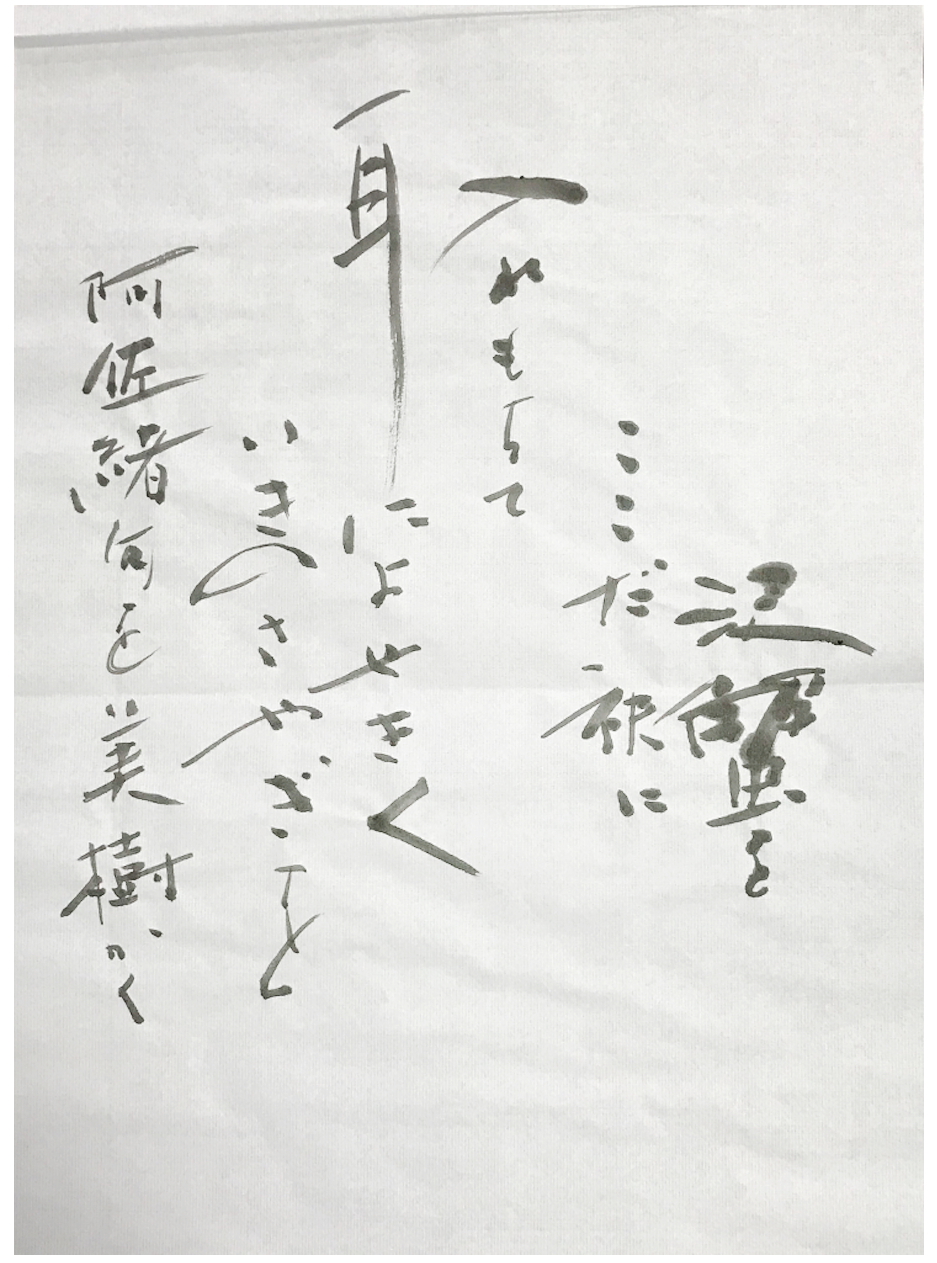 沢蟹を
ここだ袂に
入れもちて
耳によせきく
いきのさやぎを
阿佐緒句を美樹かく